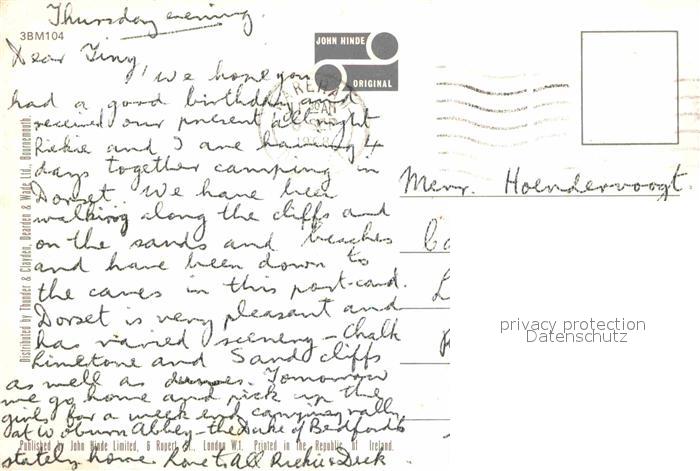 Thursday evening
3BM104
Dear Tiny,
JOHN HINDE
ORIGINAL
we hope you
had a good birthday and
received our present allright
Rickie and I are having 4
days together camping in
Dorset. We have been
walking along the cliffs and
on the sands and beaches
and have been down to
the caves in this post-card.
Dorset is very pleasant and
has varied scenery - Chalk
Limestone and Sand cliffs
as well as dunes. Tomorrow
we go home and pick up the
girls for a week end canoeing rally
at Woburn Abbey - the Duke of Bedford's
stately home. Love to All Rickie & Dick
Mevr. Hoendervoogt.
privacy protection
Datenschutz
Distributed by Thunder & Clayden, Dearden & Wade Ltd., Bournemouth.
Published by John Hinde Limited, 6 Rupert St., London W.1. Printed in the Republic of Ireland.